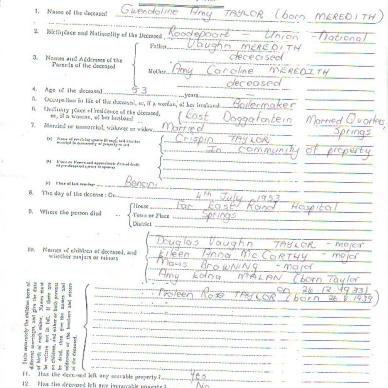 1. Name of the deceased Gwendoline Amy TAYLOR (born MEREDITH)
2. Birthplace and Nationality of the Deceased Roodepoort - Union - National
Father Vaughn MEREDITH
deceased
3. Names and Addresses of the Parents of the deceased
Mother Amy Caroline MEREDITH
deceased
4. Age of the deceased 43 years
5. Occupation in life of the deceased, or, if a woman, of her husband Boilermaker
6. Ordinary place of residence of the deceased, or, if a woman, of her husband East Daggafontein Married Quarters
Springs
7. Married or unmarried, widower or widow Married
(a) Crispin TAYLOR
In community of property
Benoni
8. The day of the decease: On 4th July 1953
House Far East Rand Hospital
9. Where the person died
Town or Place Springs
District
10. Names of children of deceased, and whether majors or minors
Douglas Vaughn TAYLOR - major
Aileen Anna McCARTHY - major
BROWNING - major
Amy Edna MALAN (born Taylor
Rose TAYLOR (born
11. Has the deceased left any movable property? Yes
12. Has the deceased left any immovable property? No